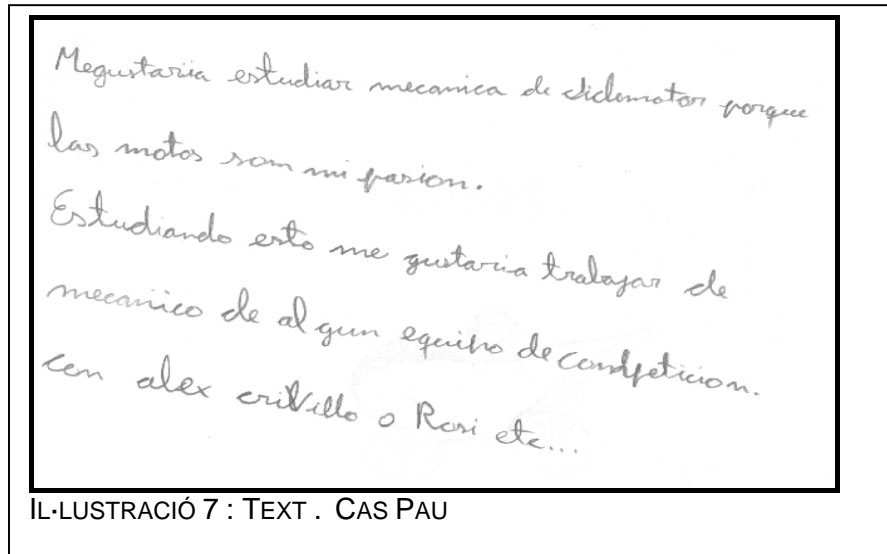 Megustaria estudiar mecanica de ciclomotor porque
las motos som mi pasion.
Estudiando esto me gustaria trabajar de
mecanico de al gun equipo de competicion.
con alex criville o Rosi etc...
IL·LUSTRACIÓ 7 : TEXT . CAS PAU